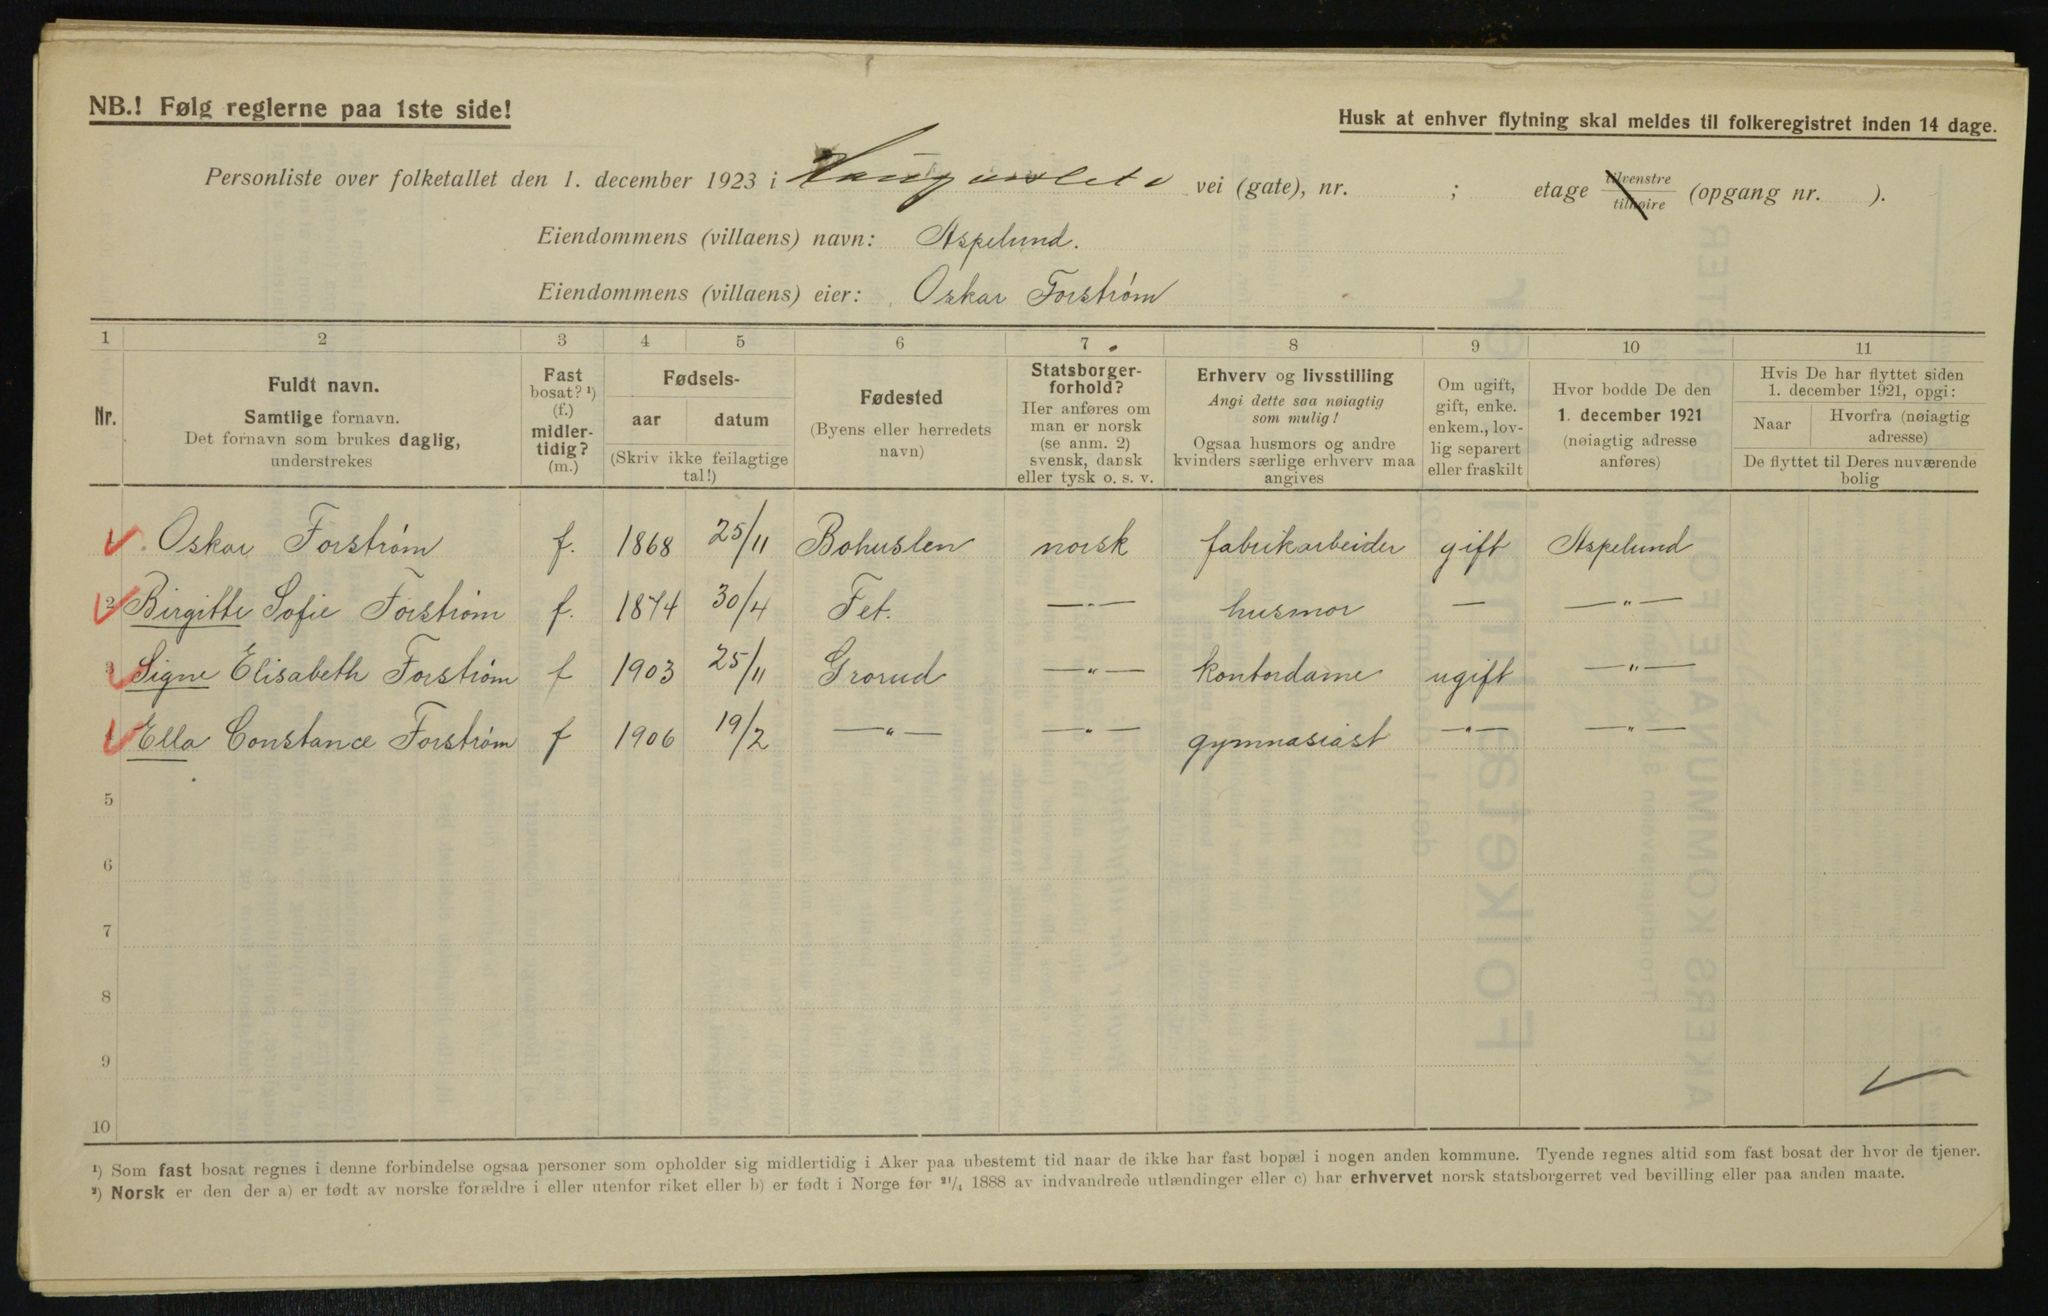 NB.! Følg reglerne paa 1ste side!
Husk at enhver flytning skal meldes til folkeregistret inden 14 dage.
Personliste over folketallet den 1. december 1923 i vei (gate), nr. ; etage tilvenstre tilhøire (opgang nr. ).
Eiendommens (villaens) navn: Aspelund.
Eiendommens (villaens) eier: Oskar Forstrøm
1 2 3 4 5 6 7 8 9 10 11
Nr.
Fuldt navn.
Samtlige fornavn.
Det fornavn som brukes daglig,
understrekes
Fast
bosat? ¹)
(f.)
midler-
tidig?
(m.)
Fødsels-
aar datum
(Skriv ikke feilagtige
tal!)
Fødested
(Byens eller herredets
navn)
Statsborger-
forhold?
Her anføres om
man er norsk
(se anm. 2)
svensk, dansk
eller tysk o. s. v.
Erhverv og livsstilling
Angi dette saa nøiagtig
som mulig!
Ogsaa husmors og andre
kvinders særlige erhverv maa
angives
Om ugift,
gift, enke.
enkem., lov-
lig separert
eller fraskilt
Hvor bodde De den
1. december 1921
(nøiagtig adresse
anføres)
Hvis De har flyttet siden
1. december 1921, opgi:
Naar
Hvorfra (nøiagtig
adresse)
De flyttet til Deres nuværende
bolig
1 Oskar Forstrøm f. 1868 25/11 Bohuslen norsk fabrikarbeider gift Aspelund
2 Birgitte Sofie Forstrøm f. 1874 30/4 Fet. —"— husmor — —"—
3 Signe Elisabeth Forstrøm f 1903 25/11 Grorud —"— kontordame ugift —"—
4 Ella Constance Forstrøm f 1906 19/2 —"— —"— gymnasiast —"— —"—
5
6
7
8
9
10
¹) Som fast bosat regnes i denne forbindelse ogsaa personer som opholder sig midlertidig i Aker paa ubestemt tid naar de ikke har fast bopæl i nogen anden kommune. Tyende regnes altid som fast bosat der hvor de tjener.
²) Norsk er den der a) er født av norske forældre i eller utenfor riket eller b) er født i Norge før ²¹/₄ 1888 av indvandrede utlændinger eller c) har erhvervet norsk statsborgerret ved bevilling eller paa anden maate.